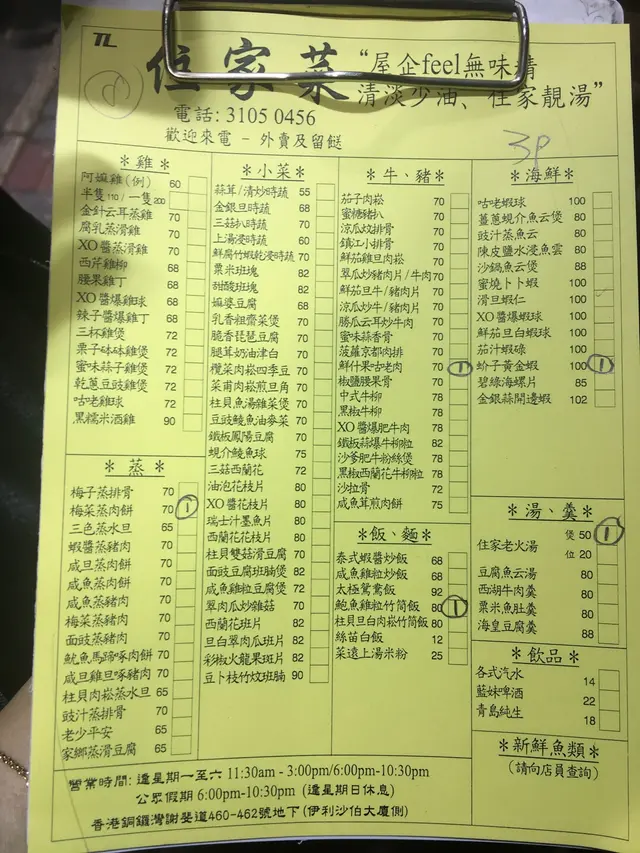 TL
住家菜
“屋企feel無味精
清淡少油、住家靚湯”
電話: 3105 0456
歡迎來電 - 外賣及留餸
3P
＊雞＊
阿嫲雞(例) 60
半隻110/一隻200
金針云耳蒸雞 70
腐乳蒸滑雞 70
XO醬蒸滑雞 70
西芹雞柳 68
腰果雞丁 68
XO醬爆雞球 68
辣子醬爆雞丁 68
三杯雞煲 72
栗子砵砵雞煲 72
蜜味蒜子雞煲 72
乾蔥豆豉雞煲 72
咕咾雞球 72
黑糯米酒雞 90
＊蒸＊
梅子蒸排骨 70
梅菜蒸肉餅 70 1
三色蒸水旦 65
蝦醬蒸豬肉 70
咸旦蒸肉餅 70
咸魚蒸肉餅 70
咸魚蒸豬肉 70
梅菜蒸豬肉 70
面豉蒸豬肉 70
魷魚馬蹄啄肉餅 70
咸旦雞旦啄豬肉 70
柱貝肉崧蒸水旦 65
豉汁蒸排骨 70
老少平安 65
家鄉蒸滑豆腐 65
＊小菜＊
蒜茸/清炒時蔬 55
金銀旦時蔬 68
三菇扒時蔬 70
上湯浸時蔬 60
鮮腐竹蝦乾浸時蔬 70
粟米班塊 82
甜酸班塊 82
嫲婆豆腐 68
乳香粗齋菜煲 70
脆香琵琶豆腐 70
腿茸奶油津白 70
欖菜肉崧四季豆 70
菜甫肉崧煎旦角 70
柱貝魚湯雜菜煲 70
豆豉鯪魚油麥菜 70
鐵板鳳陽豆腐 70
蜆介鯪魚球 75
三菇西蘭花 72
油泡花枝片 80
XO醬花枝片 80
瑞士汁墨魚片 80
西蘭花花枝片 80
柱貝雙菇滑豆腐 70
面豉豆腐班腩煲 82
咸魚雞粒豆腐煲 72
翠肉瓜炒雜菇 70
西蘭花班片 82
旦白翠肉瓜班片 82
彩椒火龍果班片 82
豆卜枝竹炆班腩 90
＊牛、豬＊
茄子肉崧 70
蜜糖豬扒 70
涼瓜炆排骨 70
鎮江小排骨 70
鮮茄雞旦肉崧 70
翠瓜炒豬肉片/牛肉 70
鮮茄旦牛/豬肉片 70
涼瓜炒牛/豬肉片 70
勝瓜云耳炒牛肉 70
蜜味蒜香骨 70
菠蘿京都肉排 70
鮮什果咕老肉 70 1
椒鹽腰果骨 70
中式牛柳 78
黑椒牛柳 78
XO醬爆肥牛肉 78
鐵板蒜爆牛柳粒 82
沙爹肥牛粉絲煲 78
黑椒西蘭花牛柳粒 78
沙拉骨 72
咸魚茸煎肉餅 75
＊飯、麵＊
泰式蝦醬炒飯 68
咸魚雞粒炒飯 68
太極鴛鴦飯 92
鮑魚雞粒竹筒飯 80 1
柱貝旦白肉崧竹筒飯 80
絲苗白飯 12
菜遠上湯米粉 25
＊海鮮＊
咕咾蝦球 100
薑蔥蜆介魚云煲 80
豉汁蒸魚云 80
陳皮鹽水浸魚雲 80
沙鍋魚云煲 88
蜜燒卜卜蝦 100
滑旦蝦仁 100
XO醬爆蝦球 100
鮮茄旦白蝦球 100
茄汁蝦碌 100
蚧子黃金蝦 100 1
碧綠海螺片 85
金銀蒜開邊蝦 102
＊湯、羹＊
住家老火湯 煲 50 1
位 20
豆腐魚云湯 80
西湖牛肉羹 80
粟米魚肚羹 80
海皇豆腐羹 88
＊飲品＊
各式汽水 14
藍妹啤酒 22
青島純生 18
＊新鮮魚類＊
(請向店員查詢)
營業時間: 逢星期一至六 11:30am - 3:00pm/6:00pm-10:30pm
公眾假期 6:00pm-10:30pm (逢星期日休息)
香港銅鑼灣謝斐道460-462號地下(伊利沙伯大廈側)